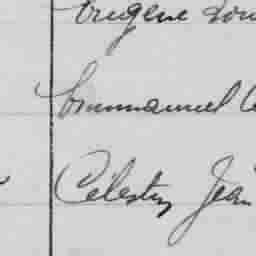 Eugène Lou
Emmanuel
Célestin Jean